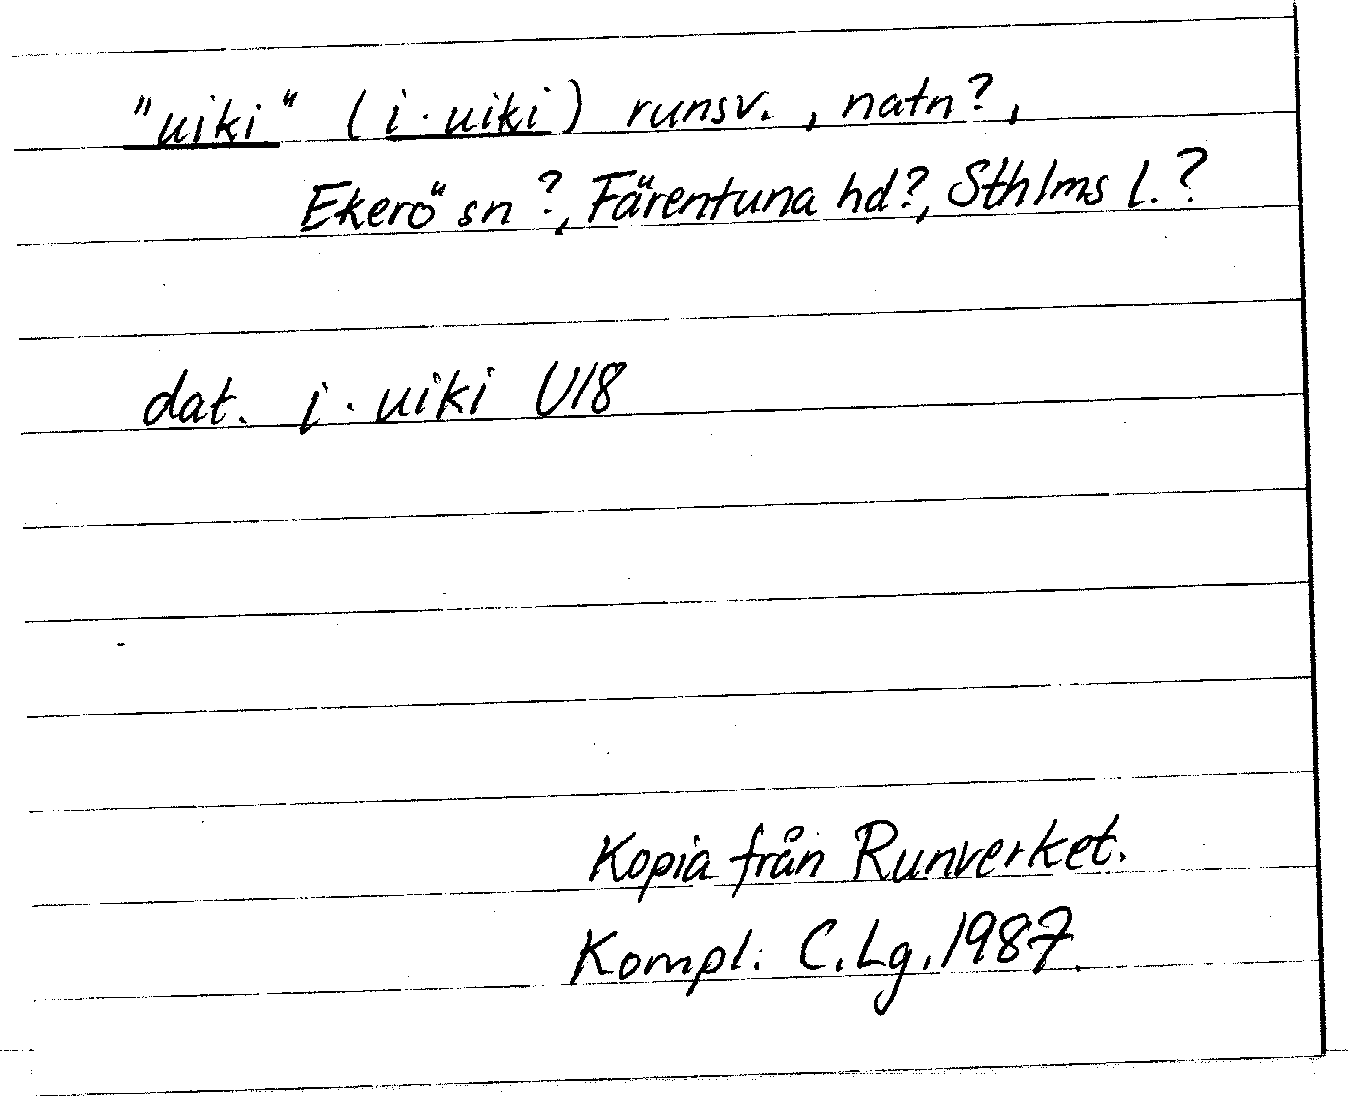 "uiki" (i · uiki) runsv. , natn?,
Ekerö sn ?, Färentuna hd?, Sthlms l. ?
dat. i · uiki U18
Kopia från Runverket.
Kompl. C. Lg. 1987.